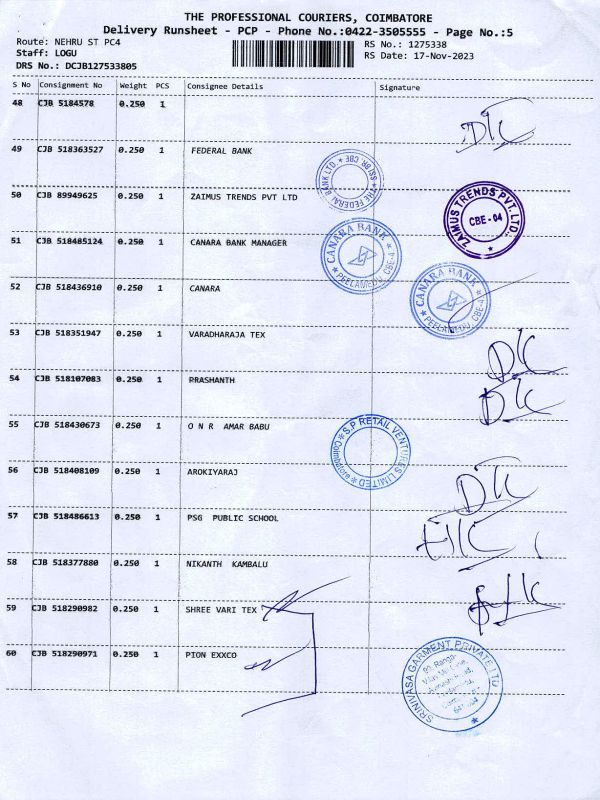 THE PROFESSIONAL COURIERS, COIMBATORE
Delivery Runsheet - PCP - Phone No.:0422-3505555 - Page No.:5
Route: NEHRU ST PC4 RS No.: 1275338
Staff: LOGU RS Date: 17-Nov-2023
DRS No.: DCJB127533805
S No Consignment No Weight PCS Consignee Details Signature
48 CJB 5184578 0.250 1
49 CJB 518363527 0.250 1 FEDERAL BANK
THE FEDERAL BANK LTD. SSI/BR/CBE
50 CJB 89949625 0.250 1 ZAIMUS TRENDS PVT LTD
ZAIMUS TRENDS PVT. LTD. CBE-04
51 CJB 518485124 0.250 1 CANARA BANK MANAGER
CANARA BANK PEELAMEDU, CBE-4
52 CJB 518436910 0.250 1 CANARA
CANARA BANK PEELAMEDU, CBE-4
53 CJB 518351947 0.250 1 VARADHARAJA TEX
54 CJB 518107083 0.250 1 PRASHANTH
55 CJB 518430673 0.250 1 O N R AMAR BABU
S.P RETAIL VENTURES LIMITED Coimbatore
56 CJB 518408109 0.250 1 AROKIYARAJ
57 CJB 518486613 0.250 1 PSG PUBLIC SCHOOL
58 CJB 518377880 0.250 1 NIKANTH KAMBALU
59 CJB 518290982 0.250 1 SHREE VARI TEX
60 CJB 518290971 0.250 1 PION EXXCO
SRINIVASA GARMENT PRIVATE LTD